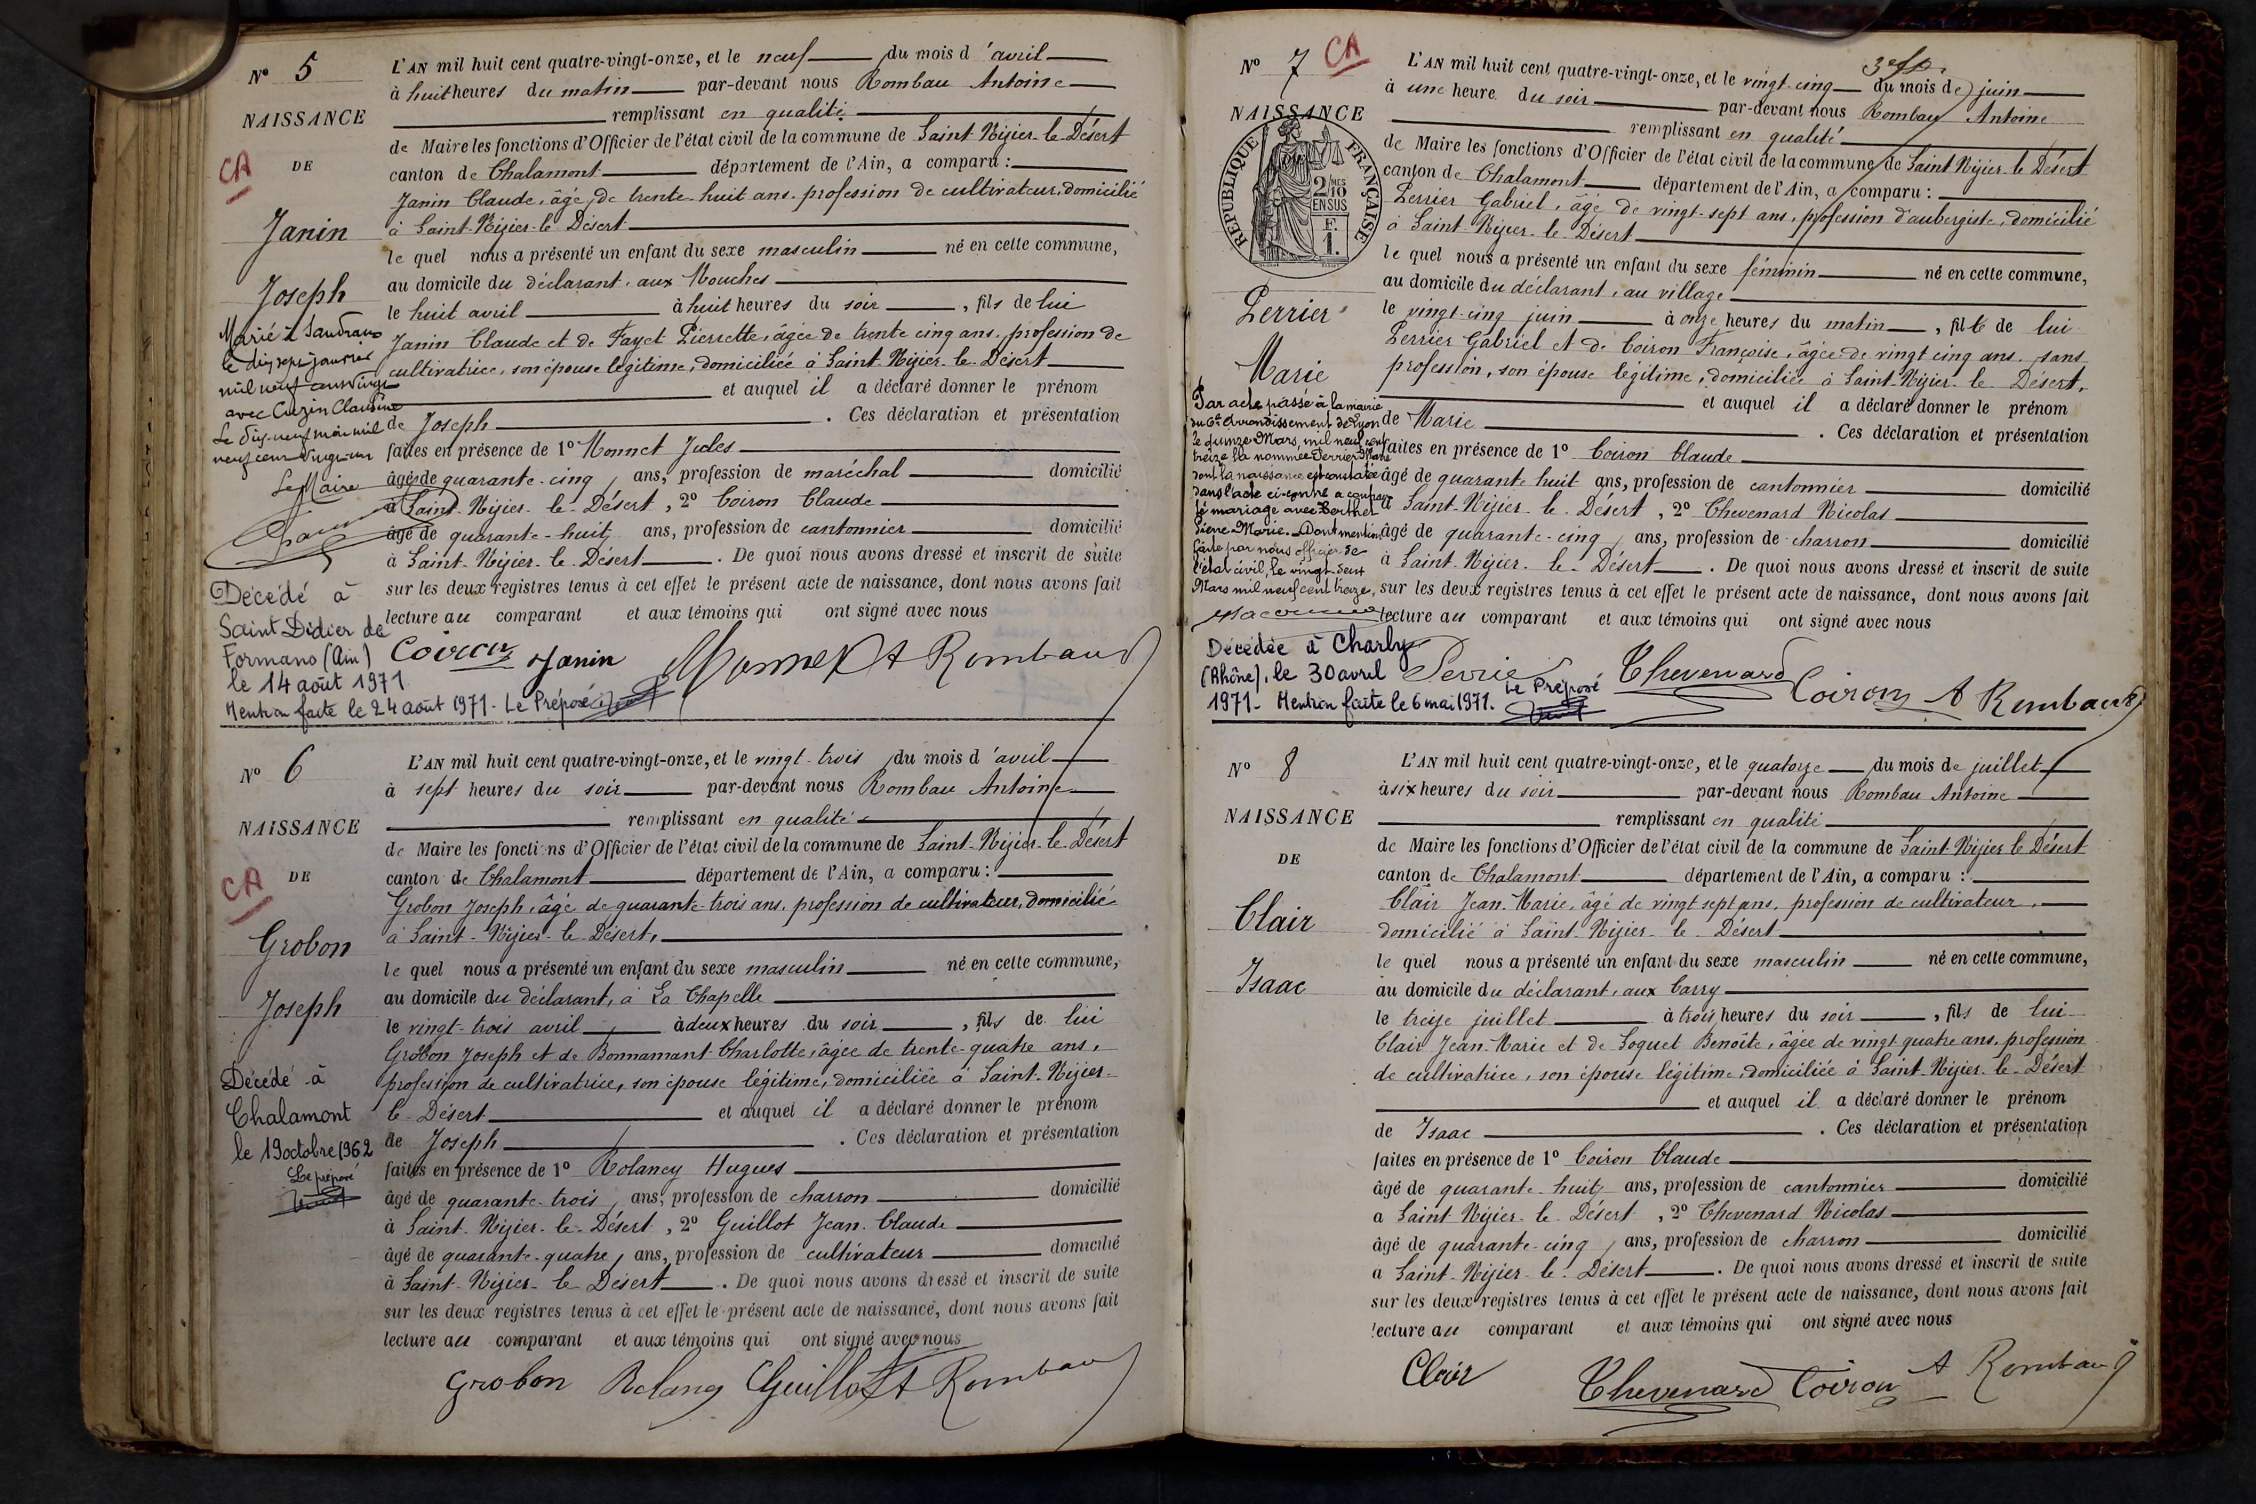 N° 5
NAISSANCE
DE
CA
Janin
Joseph
Marié à Sandrans
le dix sept janvier
mil neuf cent vingt
avec Cuzin Claudine
Le dix-neuf mai mil
neuf cent vingt-un
Le Maire
Décédé à
Saint Didier de
Formans (Ain)
le 14 août 1971
Mention faite le 24 août 1971 - Le Préposé
L'AN mil huit cent quatre-vingt-onze, et le neuf du mois d'avril
à huit heures du matin par-devant nous Rombau Antoine
remplissant en qualité
de Maire les fonctions d'Officier de l'état civil de la commune de Saint-Nizier-le-Désert
canton de Chalamont département de l'Ain, a comparu :
Janin Claude, âgé de trente-huit ans, profession de cultivateur, domicilié
à Saint-Nizier-le Désert
le quel nous a présenté un enfant du sexe masculin né en cette commune,
au domicile du déclarant, aux Mouches
le huit avril à huit heures du soir, fils de lui
Janin Claude et de Fayet Pierrette, âgée de trente cinq ans, profession de
cultivatrice, son épouse légitime, domiciliée à Saint-Nizier-le-Désert
et auquel il a déclaré donner le prénom
de Joseph. Ces déclaration et présentation
faites en présence de 1° Monnet Jules
âgé de quarante-cinq ans, profession de maréchal domicilié
à Saint-Nizier-le-Désert, 2° Coiron Claude
âgé de quarante-huit ans, profession de cantonnier domicilié
à Saint-Nizier-le-Désert. De quoi nous avons dressé et inscrit de suite
sur les deux registres tenus à cet effet le présent acte de naissance, dont nous avons fait
lecture au comparant et aux témoins qui ont signé avec nous
Coiron Janin Monnet A Rombau
N° 6
NAISSANCE
DE
CA
Grobon
Joseph
Décédé à
Chalamont
le 19 octobre 1962
Le préposé
L'AN mil huit cent quatre-vingt-onze, et le vingt-trois du mois d'avril
à sept heures du soir par-devant nous Rombau Antoine
remplissant en qualité
de Maire les fonctions d'Officier de l'état civil de la commune de Saint-Nizier-le-Désert
canton de Chalamont département de l'Ain, a comparu :
Grobon Joseph, âgé de quarante-trois ans, profession de cultivateur, domicilié
à Saint-Nizier-le-Désert,
le quel nous a présenté un enfant du sexe masculin né en cette commune,
au domicile du déclarant, à La Chapelle
le vingt-trois avril à deux heures du soir, fils de lui
Grobon Joseph et de Bonnamant Charlotte, âgée de trente-quatre ans,
profession de cultivatrice, son épouse légitime, domiciliée à Saint-Nizier-
le-Désert et auquel il a déclaré donner le prénom
de Joseph. Ces déclaration et présentation
faites en présence de 1° Rolancy Hugues
âgé de quarante-trois ans, profession de charron domicilié
à Saint-Nizier-le-Désert, 2° Guillot Jean-Claude
âgé de quarante-quatre ans, profession de cultivateur domicilié
à Saint-Nizier-le-Désert. De quoi nous avons dressé et inscrit de suite
sur les deux registres tenus à cet effet le présent acte de naissance, dont nous avons fait
lecture au comparant et aux témoins qui ont signé avec nous
Grobon Rolancy Guillot A Rombau
N° 7 CA
NAISSANCE
RÉPUBLIQUE FRANÇAISE
2/10 EN SUS
F. 1.
Perrier
Marie
Par acte passé à la mairie
du 6e Arrondissement de Lyon
le quinze Mars, mil neuf cent
treize la nommée Perrier Marie
dont la naissance est constatée
dans l'acte ci-contre a contracté
mariage avec Berthet
Pierre-Marie. Dont mention
faite par nous officier de
l'état civil, le vingt-sept
Mars mil neuf cent treize.
Décédée à Charly
(Rhône), le 30 avril
1971 - Mention faite le 6 mai 1971. Le Préposé
L'AN mil huit cent quatre-vingt-onze, et le vingt-cinq du mois de juin
à une heure du soir par-devant nous Rombau Antoine
remplissant en qualité
de Maire les fonctions d'Officier de l'état civil de la commune de Saint-Nizier-le-Désert
canton de Chalamont département de l'Ain, a comparu :
Perrier Gabriel, âgé de vingt-sept ans, profession d'aubergiste, domicilié
à Saint-Nizier-le-Désert
le quel nous a présenté un enfant du sexe féminin né en cette commune,
au domicile du déclarant, au village
le vingt-cinq juin à onze heures du matin, fille de lui
Perrier Gabriel et de Coiron Françoise, âgée de vingt cinq ans, sans
profession, son épouse légitime, domiciliée à Saint-Nizier-le-Désert,
et auquel il a déclaré donner le prénom
de Marie. Ces déclaration et présentation
faites en présence de 1° Coiron Claude
âgé de quarante huit ans, profession de cantonnier domicilié
à Saint-Nizier-le-Désert, 2° Chevenard Nicolas
âgé de quarante-cinq ans, profession de charron domicilié
à Saint-Nizier-le-Désert. De quoi nous avons dressé et inscrit de suite
sur les deux registres tenus à cet effet le présent acte de naissance, dont nous avons fait
lecture au comparant et aux témoins qui ont signé avec nous
Perrier Chevenard Coiron A Rombau
N° 8
NAISSANCE
DE
Clair
Isaac
L'AN mil huit cent quatre-vingt-onze, et le quatorze du mois de juillet
à six heures du soir par-devant nous Rombau Antoine
remplissant en qualité
de Maire les fonctions d'Officier de l'état civil de la commune de Saint-Nizier le Désert
canton de Chalamont département de l'Ain, a comparu :
Clair Jean-Marie, âgé de vingt sept ans, profession de cultivateur,
domicilié à Saint-Nizier-le-Désert
le quel nous a présenté un enfant du sexe masculin né en cette commune,
au domicile du déclarant, aux Carry
le treize juillet à trois heures du soir, fils de lui
Clair Jean-Marie et de Loquet Benoîte, âgée de vingt quatre ans, profession
de cultivatrice, son épouse légitime, domiciliée à Saint-Nizier-le-Désert
et auquel il a déclaré donner le prénom
de Isaac. Ces déclaration et présentation
faites en présence de 1° Coiron Claude
âgé de quarante-huit ans, profession de cantonnier domicilié
à Saint-Nizier-le-Désert, 2° Chevenard Nicolas
âgé de quarante-cinq ans, profession de charron domicilié
à Saint-Nizier-le-Désert. De quoi nous avons dressé et inscrit de suite
sur les deux registres tenus à cet effet le présent acte de naissance, dont nous avons fait
lecture au comparant et aux témoins qui ont signé avec nous
Clair Chevenard Coiron A Rombau